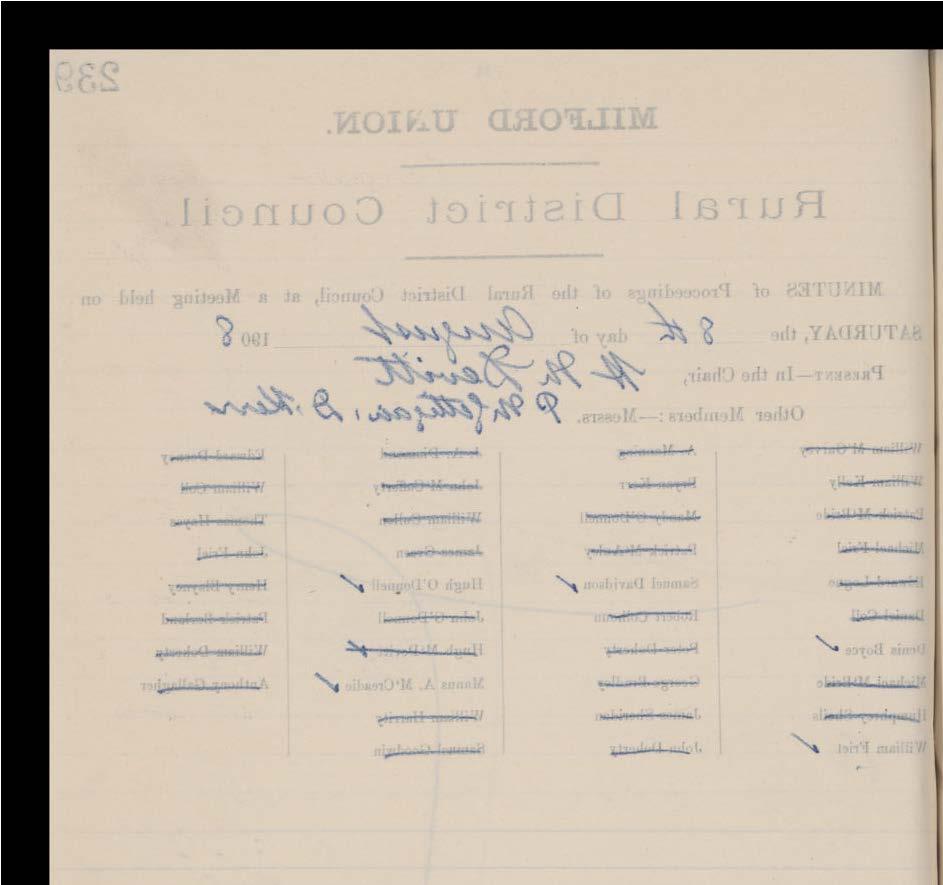 239
MILFORD UNION.
Rural District Council.
MINUTES of Proceedings of the Rural District Council, at a Meeting held on
SATURDAY, the 8th day of August 1908
PRESENT—In the Chair, H McDevitt
Other Members:—Messrs. P McGettigan, D. Kerr
William McGarvey A. Manning Edward Deeney
William Kelly Bryan Kerr John McCafferty William Coll
Patrick McBride Mandy O'Donnell William Cullen Thomas Hayes
Michael Friel Patrick McAuley James Green John Friel
Edward Logue Samuel Davidson Hugh O'Donnell Henry Blayney
Daniel Coll Robert Colhoun John O'Donnell Patrick
Denis Boyce Peter Doherty Hugh William Doherty
Michael McBride George Bradley Manus A. McCreadie Anthony Gallagher
Humphrey Sheils James Sheridan William
William Friel John Doherty Samuel Goodwin